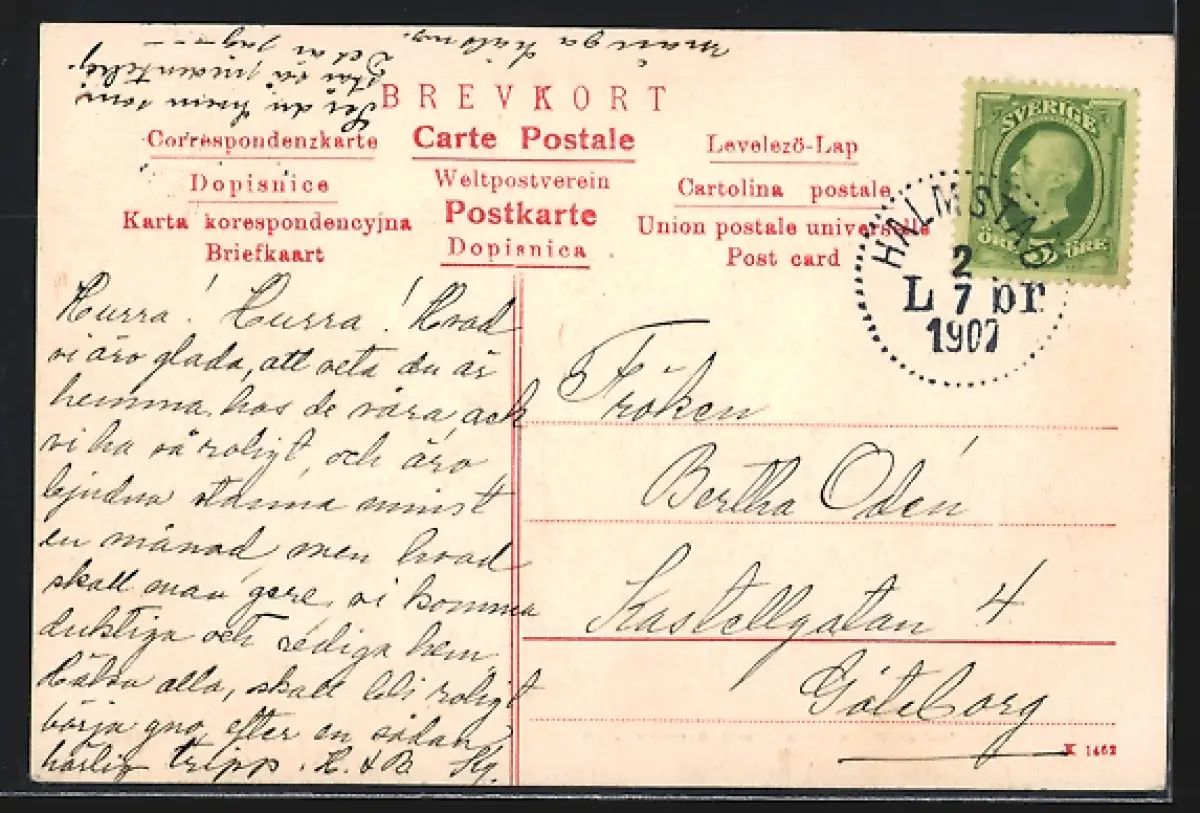 BREVKORT
Correspondenzkarte
Carte Postale
Levelező-Lap
Dopisnice
Weltpostverein
Cartolina postale
Karta korespondencyjna
Postkarte
Union postale universelle
Briefkaart
Dopisnica
Post card
SVERIGE
ÖRE 5 ÖRE
HALMSTAD
2
L 7 br
1907
Hurra! Hurra! Hvad
vi äro glada, att veta du är
hemma hos de våra, ack
vi ha så roligt, och äro
bjudna stanna minst
en månad, men hvad
skall man göre, vi komma
duktiga och rediga hem,
Hälsa alla, skall bli roligt
börja gno efter en sådan
härlig tripp. H. & B
Fröken
Bertha Odén
Kastellgatan 4
Göteborg
K 1462
Ser du hvem som
Det är jag ---
många hälsn.